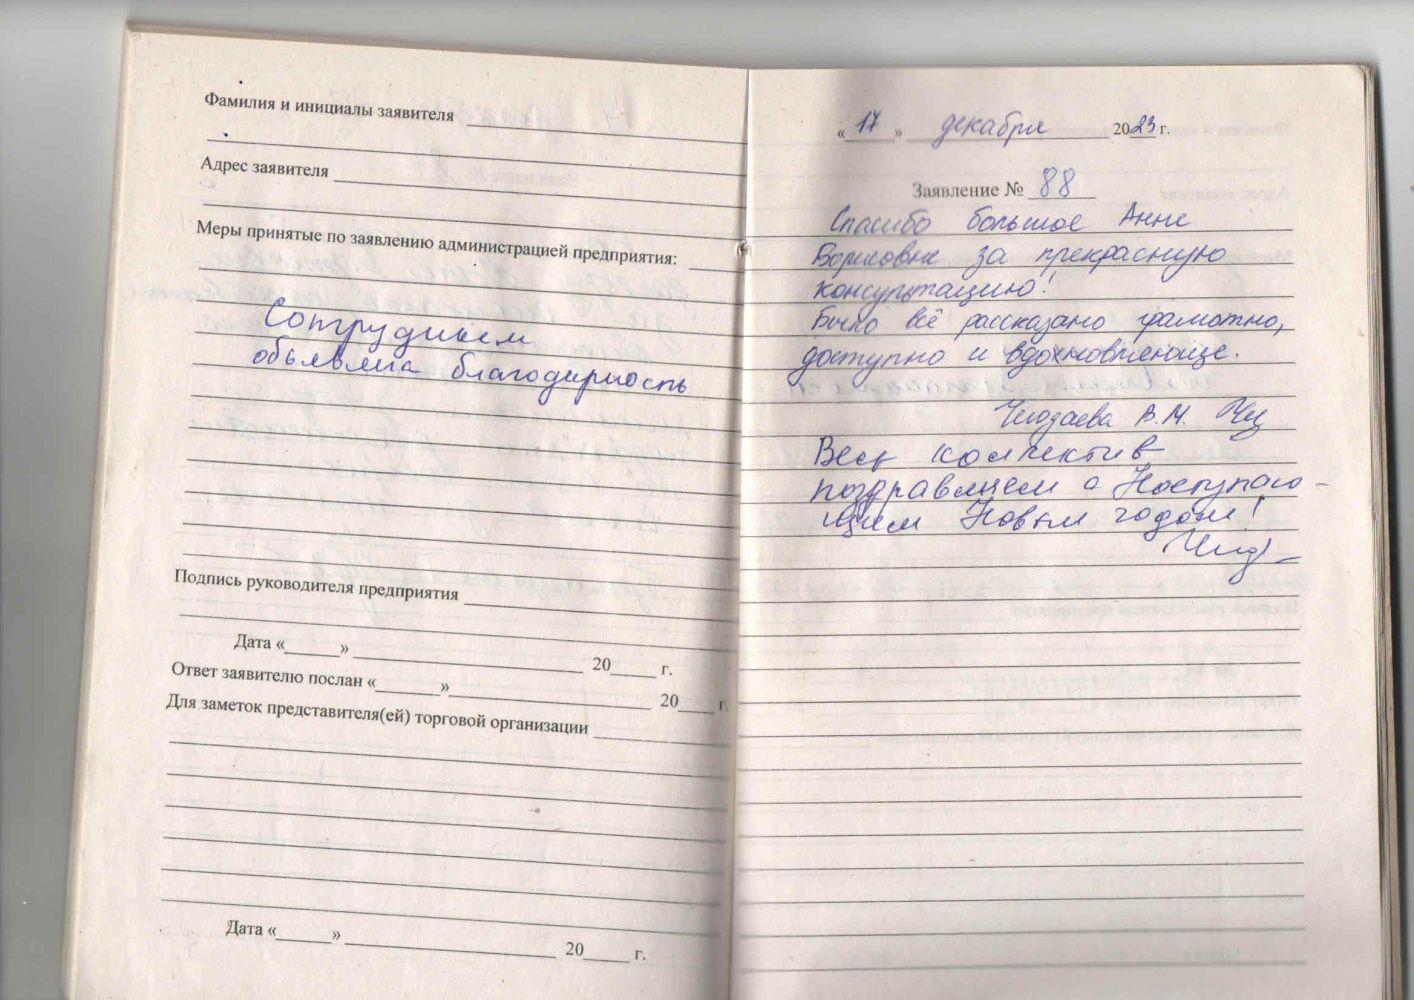 Фамилия и инициалы заявителя
Адрес заявителя
Меры принятые по заявлению администрацией предприятия:
Сотрудникам
объявлена благодарность
Подпись руководителя предприятия
Дата «______» ______ 20____ г.
Ответ заявителю послан «______» ______ 20____ г.
Для заметок представителя(ей) торговой организации
Дата «______» ______ 20____ г.
« 17 » декабря 2023 г.
Заявление № 88
Спасибо большое Анне
Борисовне за прекрасную
консультацию!
Было всё рассказано грамотно,
доступно и вдохновляюще.
В.М.
Весь коллектив
поздравляем с Наступаю-
щим Новым годом!